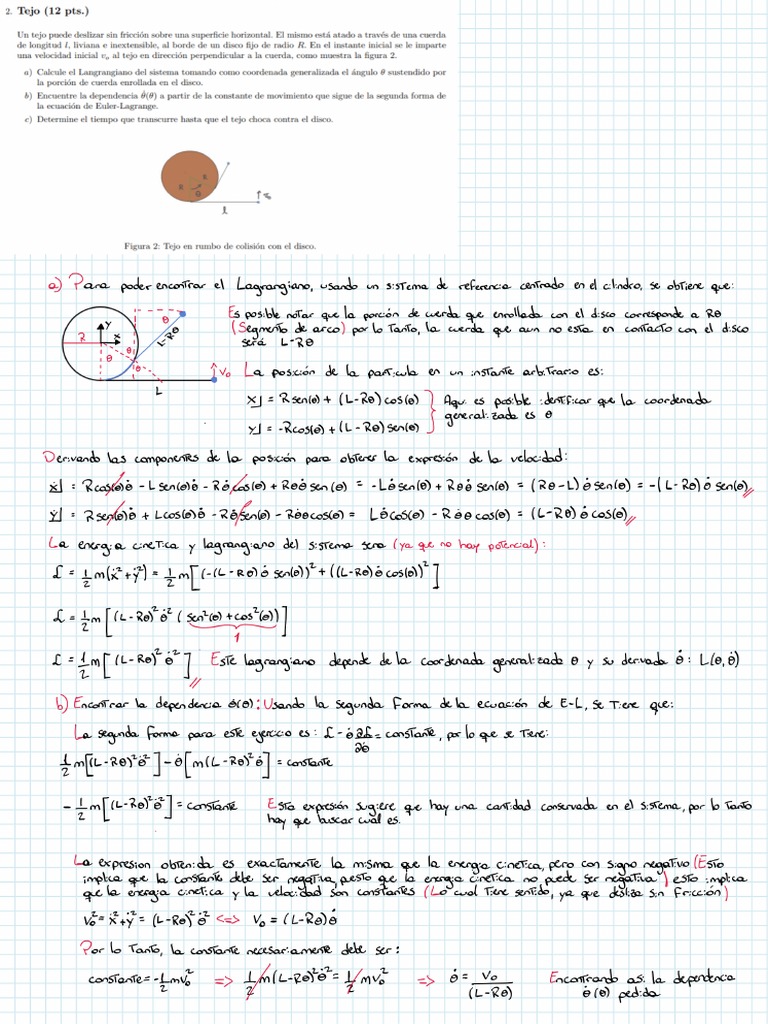 2. Tejo (12 pts.)
Un tejo puede deslizar sin fricción sobre una superficie horizontal. El mismo está atado a través de una cuerda
de longitud l, liviana e inextensible, al borde de un disco fijo de radio R. En el instante inicial se le imparte
una velocidad inicial vₒ al tejo en dirección perpendicular a la cuerda, como muestra la figura 2.
a) Calcule el Langrangiano del sistema tomando como coordenada generalizada el ángulo θ sustendido por
la porción de cuerda enrollada en el disco.
b) Encuentre la dependencia θ̇(θ) a partir de la constante de movimiento que sigue de la segunda forma de
la ecuación de Euler-Lagrange.
c) Determine el tiempo que transcurre hasta que el tejo choca contra el disco.
R
R
θ
l
Figura 2: Tejo en rumbo de colisión con el disco.
a) Para poder encontrar el Lagrangiano, usando un sistema de referencia centrado en el cilindro, se obtiene que:
Y
X
R
θ
θ
θ
θ
L-Rθ
V₀
L
Es posible notar que la porción de cuerda que enrollada con el disco corresponde a Rθ
(Segmento de arco) por lo tanto, la cuerda que aun no esta en contacto con el disco
será L-Rθ
La posición de la particula en un instante arbitrario es:
X⌋ = Rsen(θ) + (L-Rθ)cos(θ)
Y⌋ = -Rcos(θ) + (L-Rθ)sen(θ)
Aqui es posible identificar que la coordenada
generalizada es θ
Derivando las componentes de la posición para obtener la expresión de la velocidad:
ẋ⌋ : Rcos(θ)θ̇ - Lsen(θ)θ̇ - Rθ̇cos(θ) + Rθθ̇ sen(θ) = -Lθ̇sen(θ) + Rθθ̇ sen(θ) = (Rθ-L)θ̇sen(θ) = -(L-Rθ)θ̇ sen(θ)
ẏ⌋ : Rsen(θ)θ̇ + Lcos(θ)θ̇ - Rθ̇sen(θ) - Rθθ̇cos(θ) = Lθ̇cos(θ) - Rθθ̇cos(θ) = (L-Rθ)θ̇cos(θ)
La energia cinetica y lagrangiano del sistema sera (ya que no hay potencial):
ℒ = 1/2 m(ẋ²+ẏ²) = 1/2 m[(-(L-Rθ)θ̇ sen(θ))² + ((L-Rθ)θ̇cos(θ))²]
ℒ = 1/2 m[(L-Rθ)²θ̇² (sen²(θ)+cos²(θ))]
1
ℒ = 1/2 m[(L-Rθ)²θ̇²] Este lagrangiano depende de la coordenada generalizada θ y su derivada θ̇: L(θ,θ̇)
b) Encontrar la dependencia θ̇(θ): Usando la segunda forma de la ecuación de E-L, se tiene que:
La segunda forma para este ejercicio es: ℒ - θ̇ ∂ℒ/∂θ̇ = constante, por lo que se tiene:
1/2 m[(L-Rθ)²θ̇²] - θ̇[m(L-Rθ)²θ̇] = constante
-1/2 m[(L-Rθ)²θ̇²] = constante Esta expresión sugiere que hay una cantidad conservada en el sistema, por lo tanto
hay que buscar cual es.
La expresion obtenida es exactamente la misma que la energia cinetica, pero con signo negativo (Esto
implica que la constante debe ser negativa, puesto que la energia cinetica no puede ser negativa) esto implica
que la energia cinetica y la velocidad son constantes (Lo cual tiene sentido, ya que desliza sin fricción)
V₀² = ẋ²+ẏ² = (L-Rθ)²θ̇² <=> V₀ = (L-Rθ)θ̇
Por lo tanto, la constante necesariamente debe ser:
constante = -1/2 mv₀² => 1/2 m(L-Rθ)²θ̇² = 1/2 mv₀² => θ̇ = V₀/(L-Rθ) Encontrando asi la dependencia
θ̇(θ) pedida